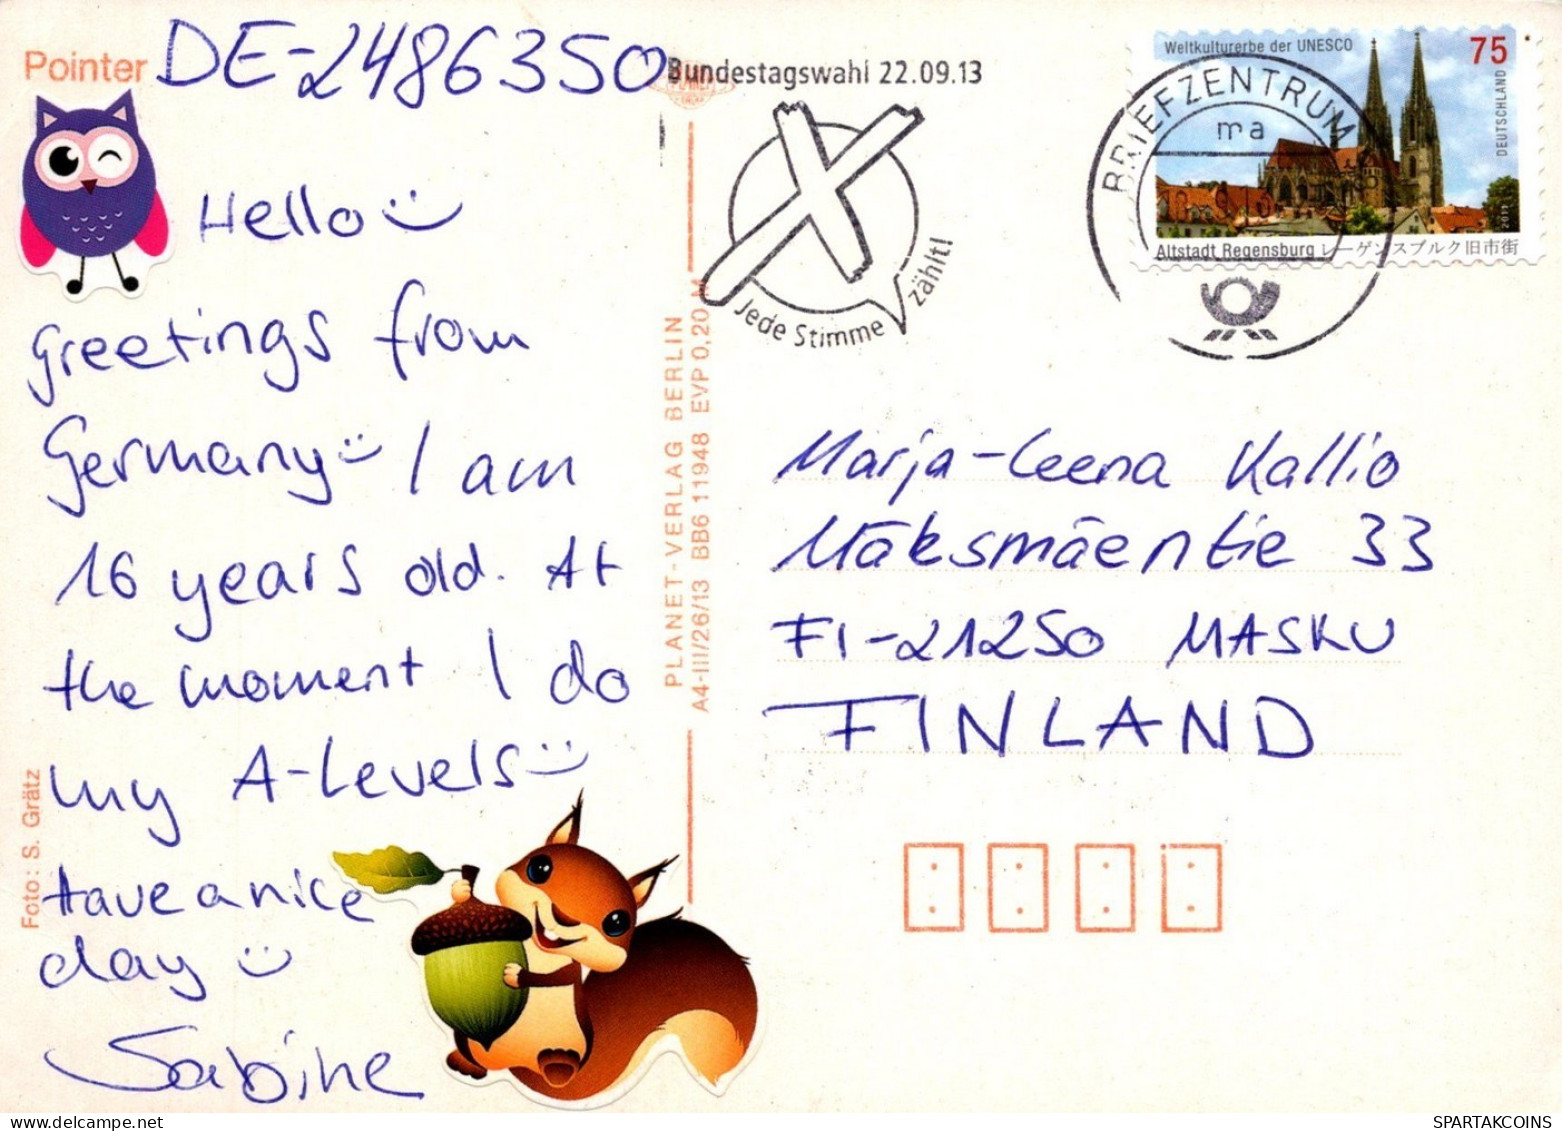 Pointer
DE-2486350
Hello
Greetings from
Germany I am
16 years old. At
the moment I do
my A-Levels
Have a nice
day
Sabine
Foto: S. Grätz
PLANET-VERLAG BERLIN
A4-III/26/13 BB6 11948 EVP 0,20 M
Bundestagswahl 22.09.13
Jede Stimme zählt!
BRIEFZENTRUM
ma
Weltkulturerbe der UNESCO
75
DEUTSCHLAND
2011
Altstadt Regensburg レーゲンスブルク旧市街
Marja-Leena Kallio
Mäksmäentie 33
FI-21250 MASKU
FINLAND
SPARTAKCOINS.COM